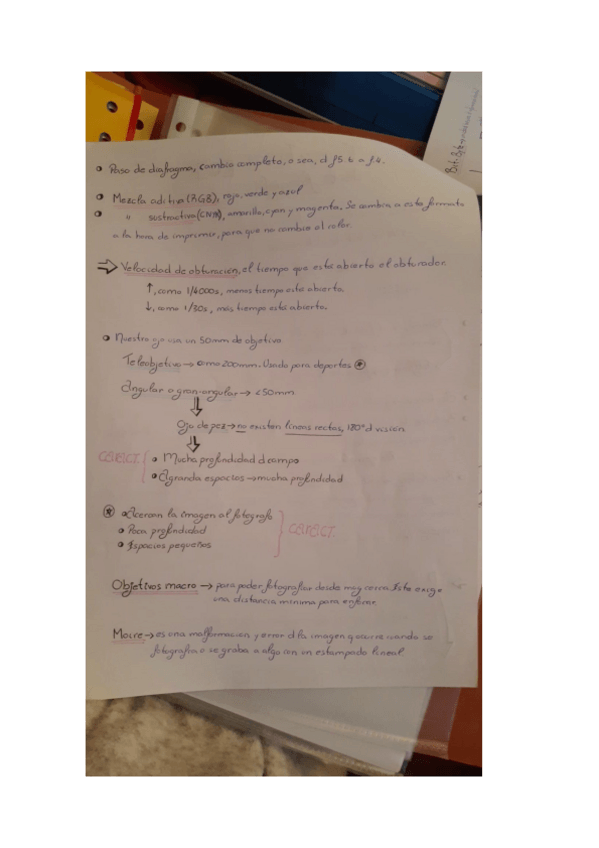 Paso de diafragma, cambio completo, o sea, d f5.6 a f.4.
Mezcla aditiva (RGB), rojo, verde y azul
" sustractiva (CNM), amarillo, cyan y magenta. Se cambia a este formato
a la hora de imprimir, para que no cambie el color.
⇒ Velocidad de obturación, el tiempo que está abierto el obturador.
↑, como 1/4000s, menos tiempo está abierto.
↓, como 1/30s, más tiempo está abierto.
Nuestro ojo usa un 50mm de objetivo
Teleobjetivo → como 200mm. Usado para deportes *
Angular o gran angular → <50mm
⇓
Ojo de pez → no existen líneas rectas, 180° d visión
⇓
CARACT. Mucha profundidad d campo
Agranda espacios → mucha profundidad
* Acercan la imagen al fotógrafo
Poca profundidad CARACT.
Espacios pequeños
Objetivos macro → para poder fotografiar desde muy cerca. Este exige
una distancia mínima para enfocar
Moire → es una malformación y error d la imagen q ocurre cuando se
fotografía o se graba a algo con un estampado lineal